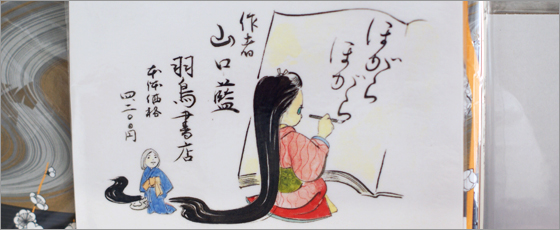 ほがら
ほがら
作者
山口藍
羽鳥書店
本体価格
四二〇〇円